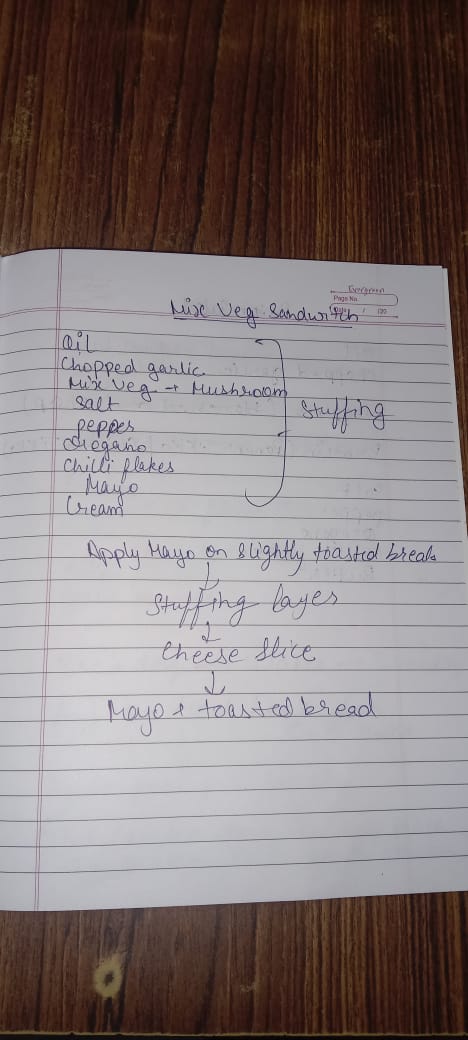 Evergreen
Page No.
Date / /20
Mix Veg Sandwitch
Oil
Chopped garlic
Mix Veg + Mushroom
Salt
pepper
Oregano
Chilli flakes
Mayo
Cream
Stuffing
Apply Mayo on slightly toasted bread
↓
Stuffing layer
↓
Cheese Slice
↓
Mayo + toasted bread